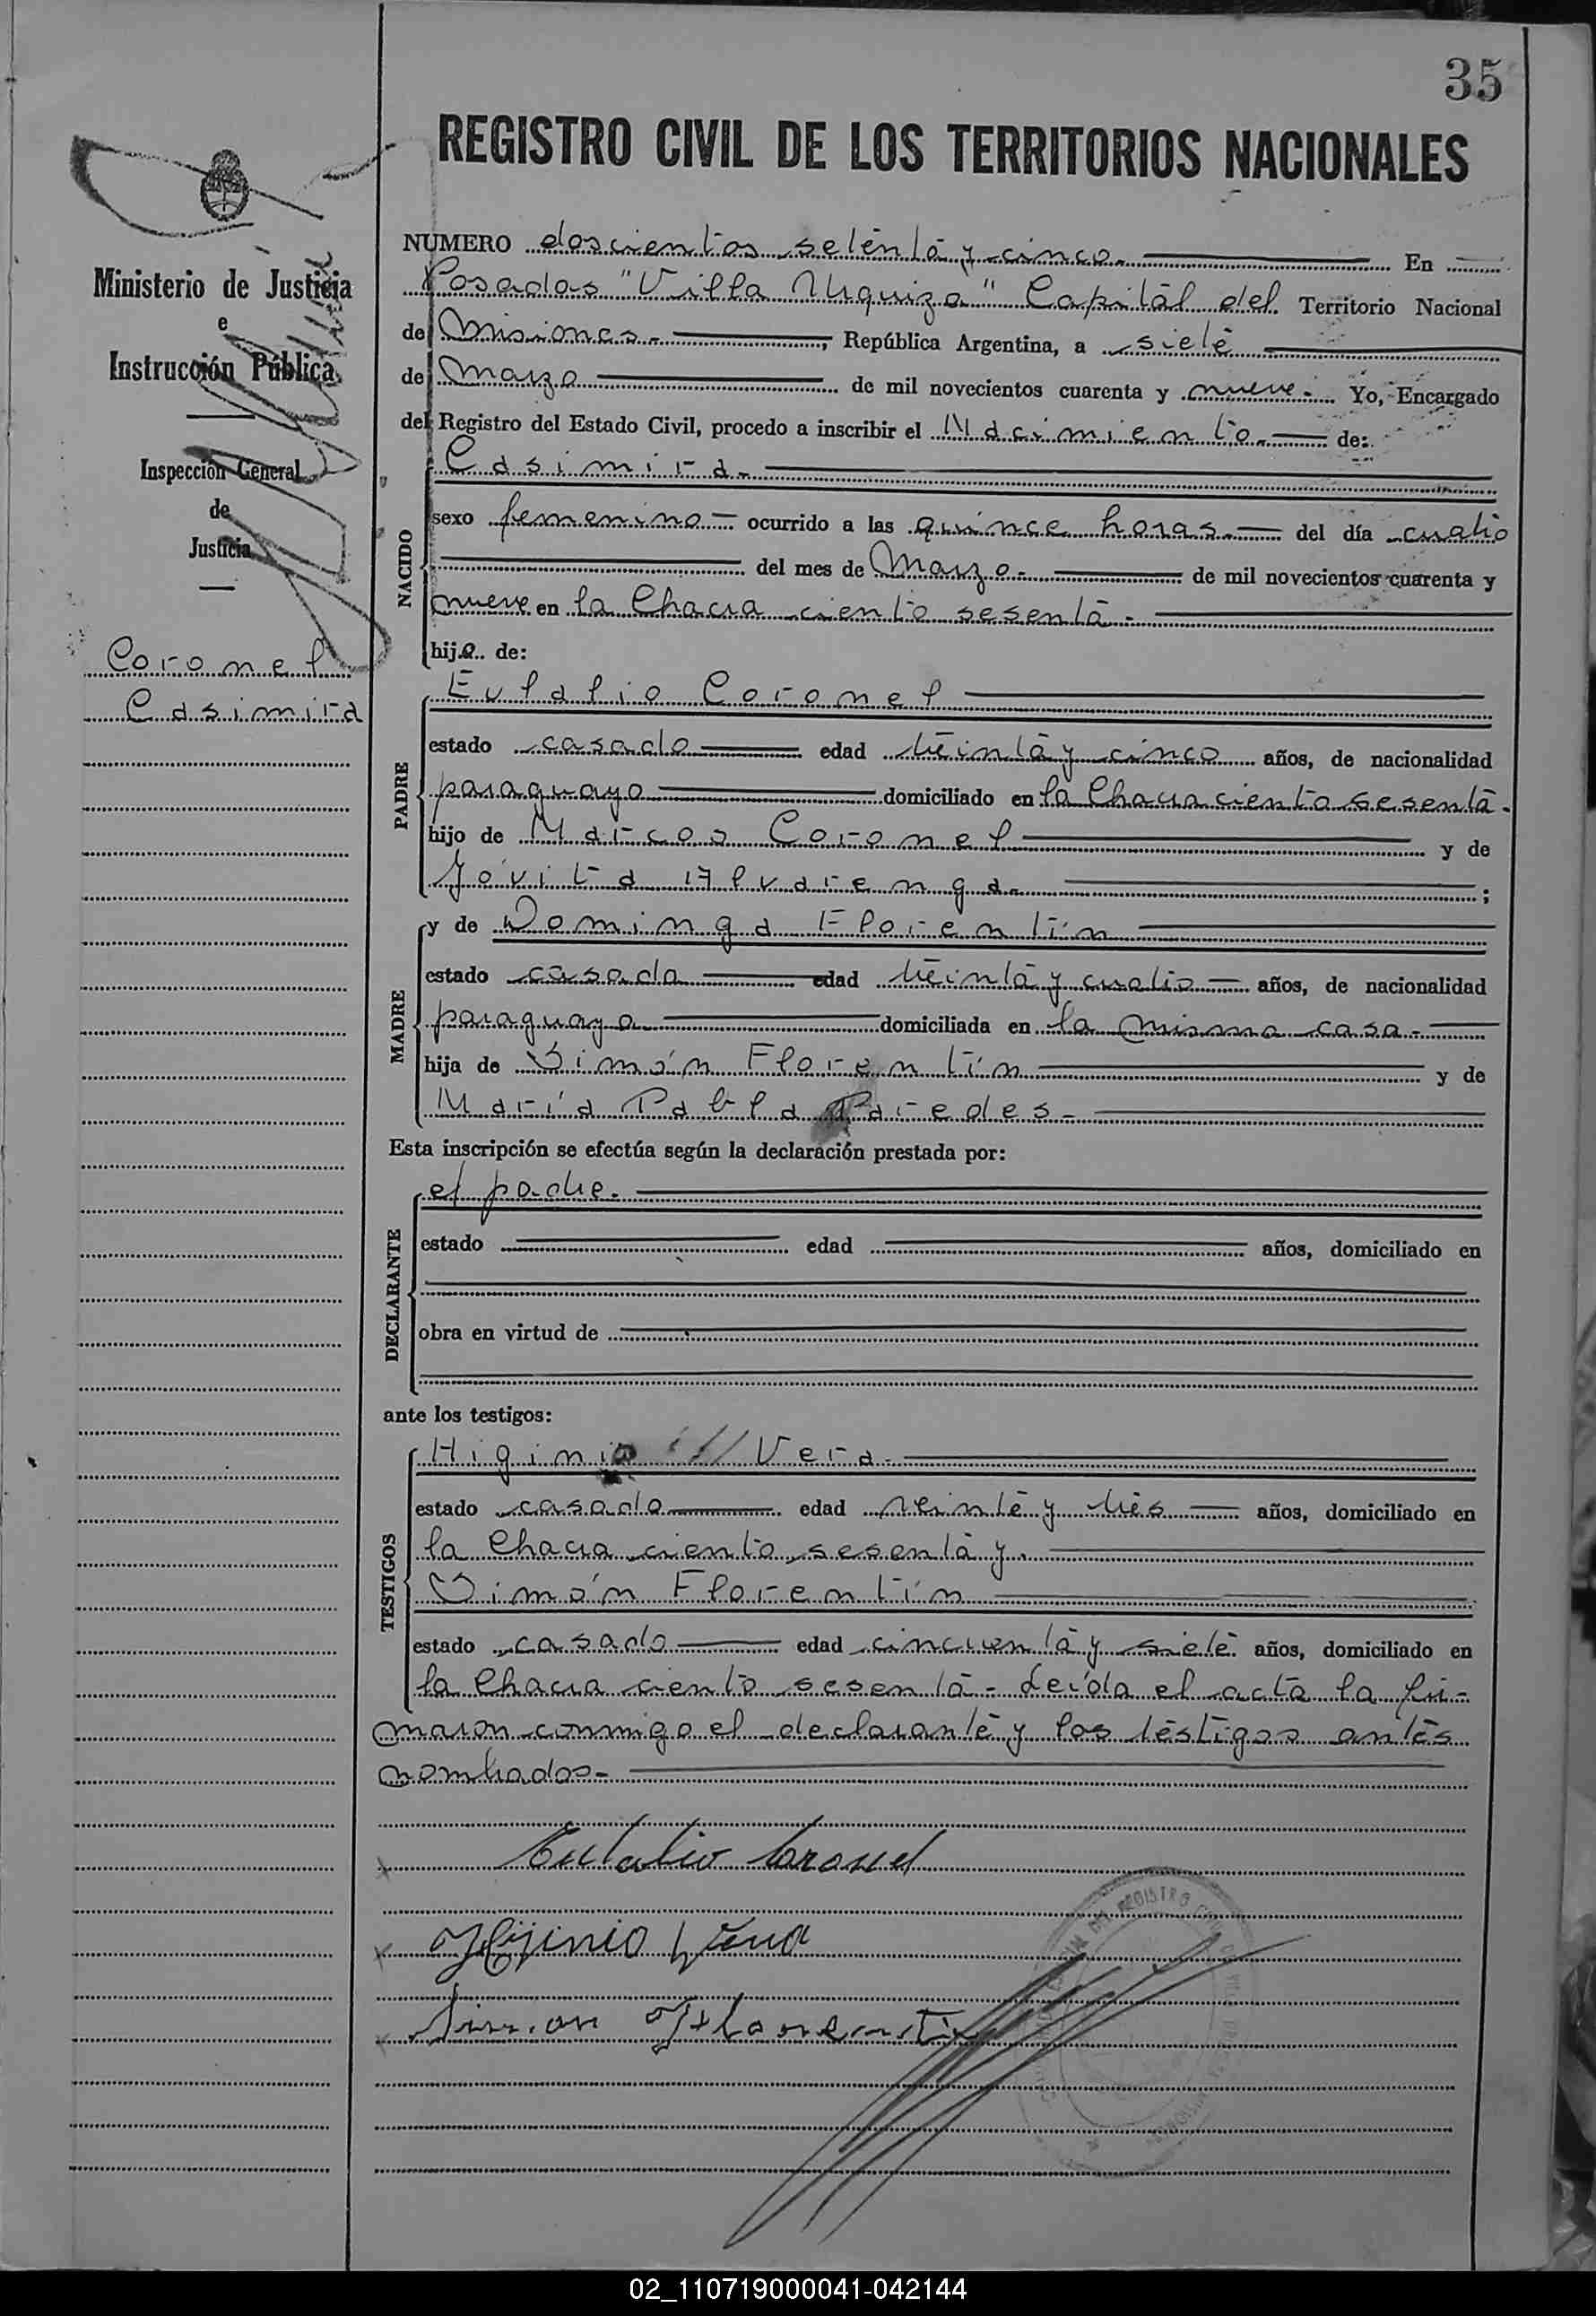 35
REGISTRO CIVIL DE LOS TERRITORIOS NACIONALES
Ministerio de Justicia
e
Instrucción Pública
Inspección General
de
Justicia
Coronel
Casimira
NUMERO doscientos setenta y cinco.- En
Posadas "Villa Urquiza" Capital del Territorio Nacional
de Misiones.-, República Argentina, a siete
de Marzo de mil novecientos cuarenta y nueve.- Yo, Encargado
del Registro del Estado Civil, procedo a inscribir el Nacimiento.- de:
Casimira.-
NACIDO
sexo femenino - ocurrido a las quince horas.- del día cuatro
del mes de Marzo.- de mil novecientos cuarenta y
nueve en la Chacra ciento sesenta.-
hija de:
PADRE
Eulalio Coronel
estado casado edad treinta y cinco años, de nacionalidad
paraguayo domiciliado en la Chacra ciento sesenta.
hijo de Marcos Coronel y de
Jóvita Alvarenga.- ;
MADRE
y de Dominga Florentín
estado casada edad treinta y cuatro años, de nacionalidad
paraguaya domiciliada en la misma casa.-
hija de Simón Florentín y de
María Pabla Paredes.-
Esta inscripción se efectúa según la declaración prestada por:
DECLARANTE
el padre.
estado edad años, domiciliado en
obra en virtud de
ante los testigos:
TESTIGOS
Higinio Vera.-
estado casado edad veinte y tres años, domiciliado en
la Chacra ciento sesenta y.
Simón Florentín
estado casado edad cincuenta y siete años, domiciliado en
la Chacra ciento sesenta - Leída el acta la fir-
maron conmigo el declarante y los testigos antes
nombrados.-
Eulalio Coronel
Hijinio Vera
Simon Florentin
02_110719000041-042144